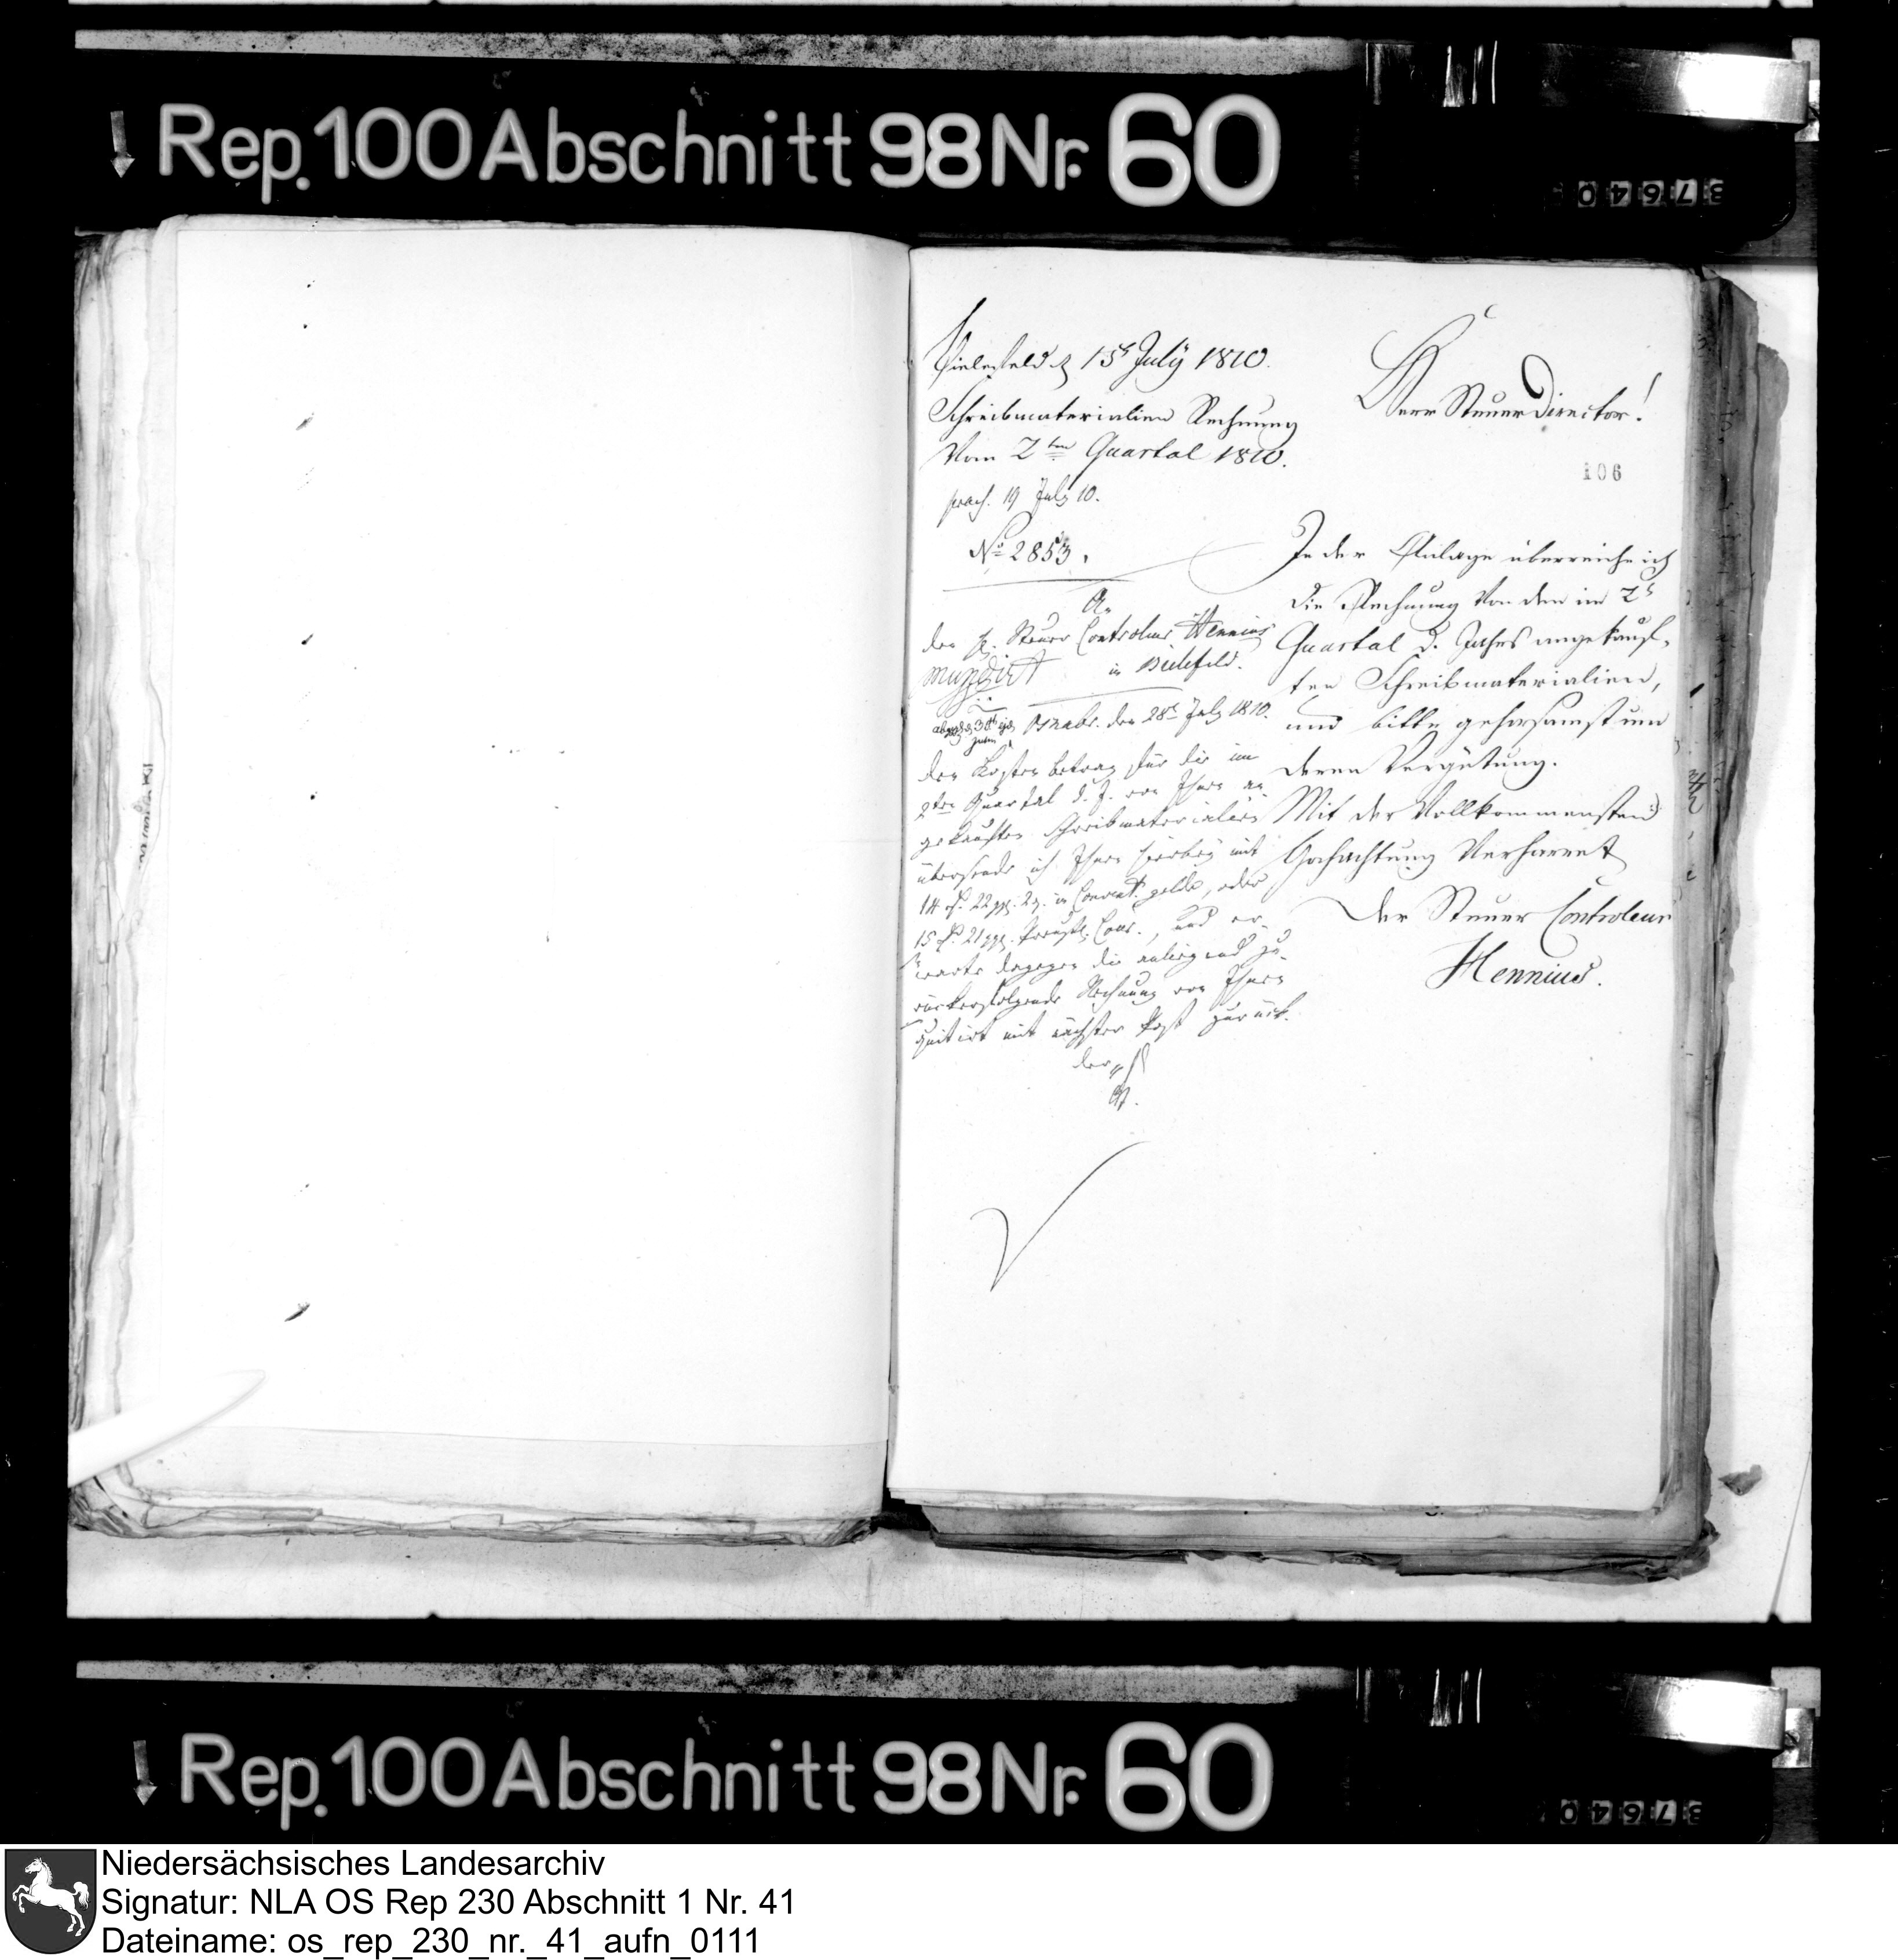 Rep. 100 Abschnitt 98 Nr. 60
37640
Bielefeld d 15t July 1810.
Schreibmaterialien Rechnung
Vom 2ten Quartal 1810.
praes. 19 July 10.
No 2853.
An
den H. Steuer Controleur Hennius
in Bielefeld.
mundirt
Osnabr. den 28t July 1810.
den Kosten betrag für die im
2ten Quartal d. J. von Ihnen an
gekauften Schreibmaterialien
übersende ich Ihnen hierbey mit
14 rt. 22 ggr. 2 d. in Convent. gelde, oder
15 rt. 21 ggr. Preuß. Cour., und er
warte dagegen die anliegend zu
rückerfolgende Rechnung von Ihnen
quitirt mit nächster Post zurück.
der
Herr Steuer Director!
106
In der Anlage überreiche ich
die Rechnung von den im 2t
Quartal d. Jahrs angekauf-
ten Schreibmaterialien,
und bitte gehorsamst um
deren Vergütung.
Mit der Vollkommensten
Hochachtung Verharret
Der Steuer Controleur
Hennius.
Rep. 100 Abschnitt 98 Nr. 60
37640
Niedersächsisches Landesarchiv
Signatur: NLA OS Rep 230 Abschnitt 1 Nr. 41
Dateiname: os_rep_230_nr._41_aufn_0111